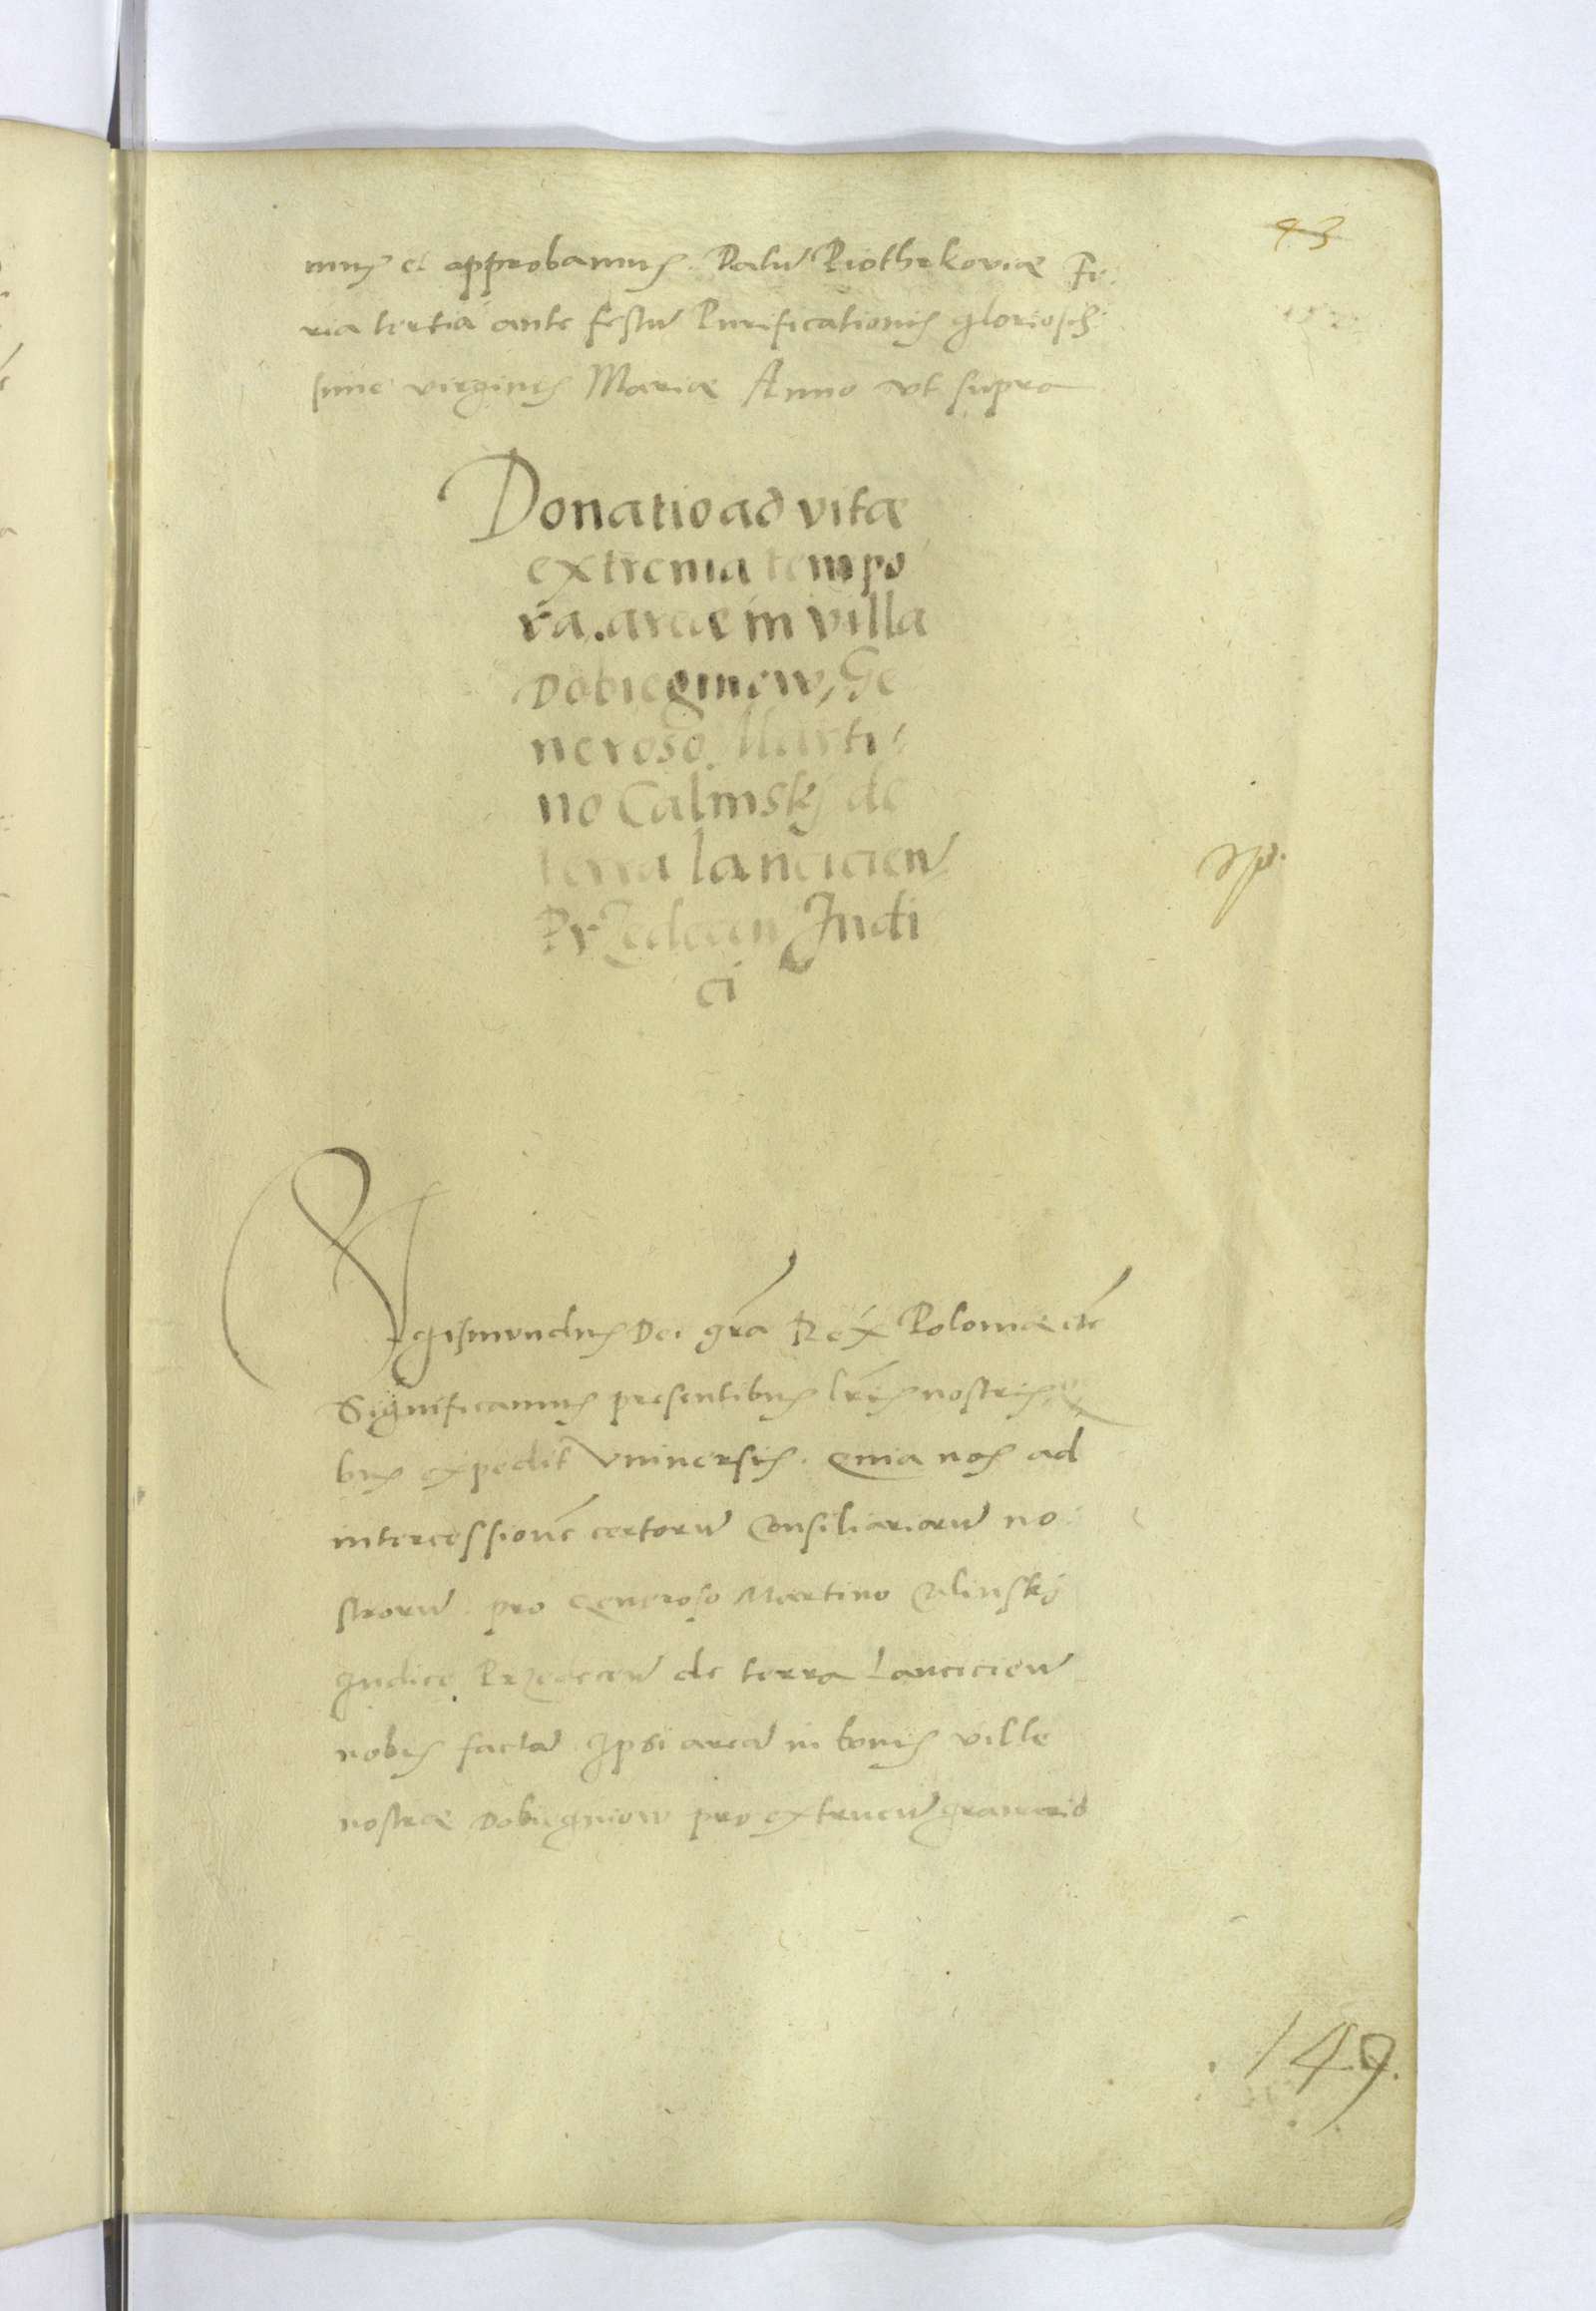 43
mus et approbamus. Datu Piothrkoviæ Fe
ria tertia ante festu Purificationis gloriosis
sime virginis Mariæ Anno vt supra
Donatio ad vitæ
extrema tempo
ra. areæ in villa
Dobiegniew, Ge
neroso Marti
no Calinskÿ de
terra lancicien
Przedecen Iudi
ci
Sigismundus Dei gra Rex Poloniæ etc
Significamus presentibus lris nostris
bus expedit vniuersis. Quia nos ad
intercessione certoru Consiliarioru no
stroru pro Generoso Martino Calinskÿ
Iudice Przedecen de terra Lancicien
nobis facta Ipsi area in bonis ville
nostræ Dobiegniow pro extruen granario
149.